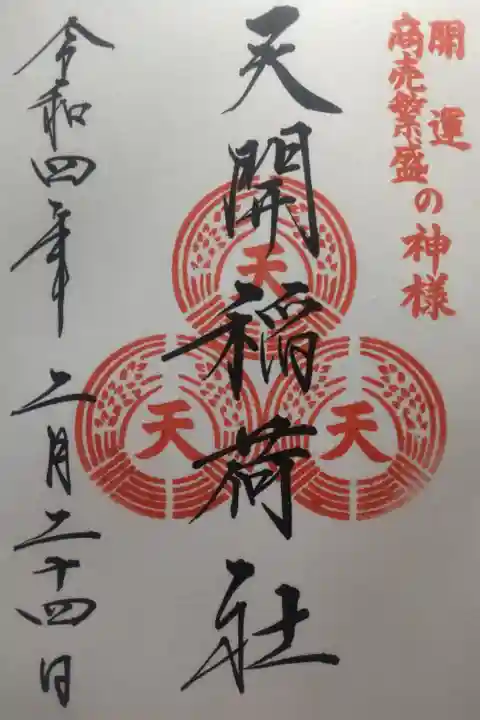 開運
商売繁盛の神様
天開稲荷社
天
天
天
令和四年二月二十四日